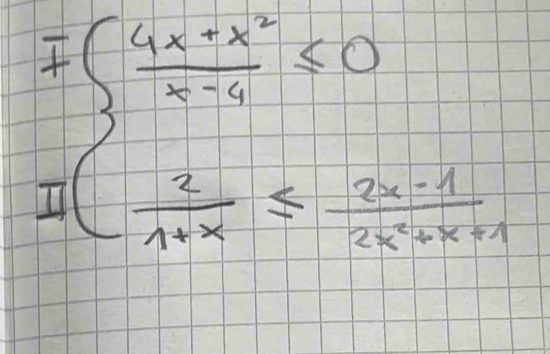 I { (4x + x²)/(x - 4) ≤ 0
II { 2/(1 + x) ≤ (2x - 1)/(2x² + x + 1)